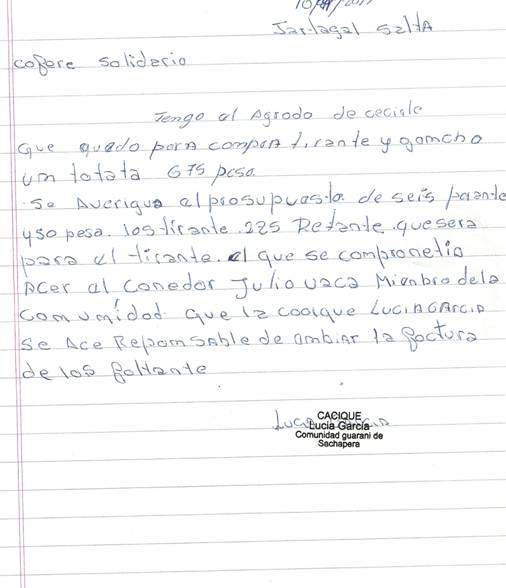 Tartagal SaltA
cofere solidario
Tengo al Agrado de cecirle
Que quedo porA compra tirante y gamcho
um totata 675 peso.
Se Averiguo al prosupuasto. de seis
450 peso. los tirante. 225 Retante. que sera
para el tirante. el que se compronetio
Acer al Conedor Julio Vaca Mienbro dela
Comunidad que la cacique LuciA GArciA
Se Ace ReponsAble de ambiAr la factura
de los faltante
CACIQUE
Lucia Garcia
Comunidad guarani de
Sachapera